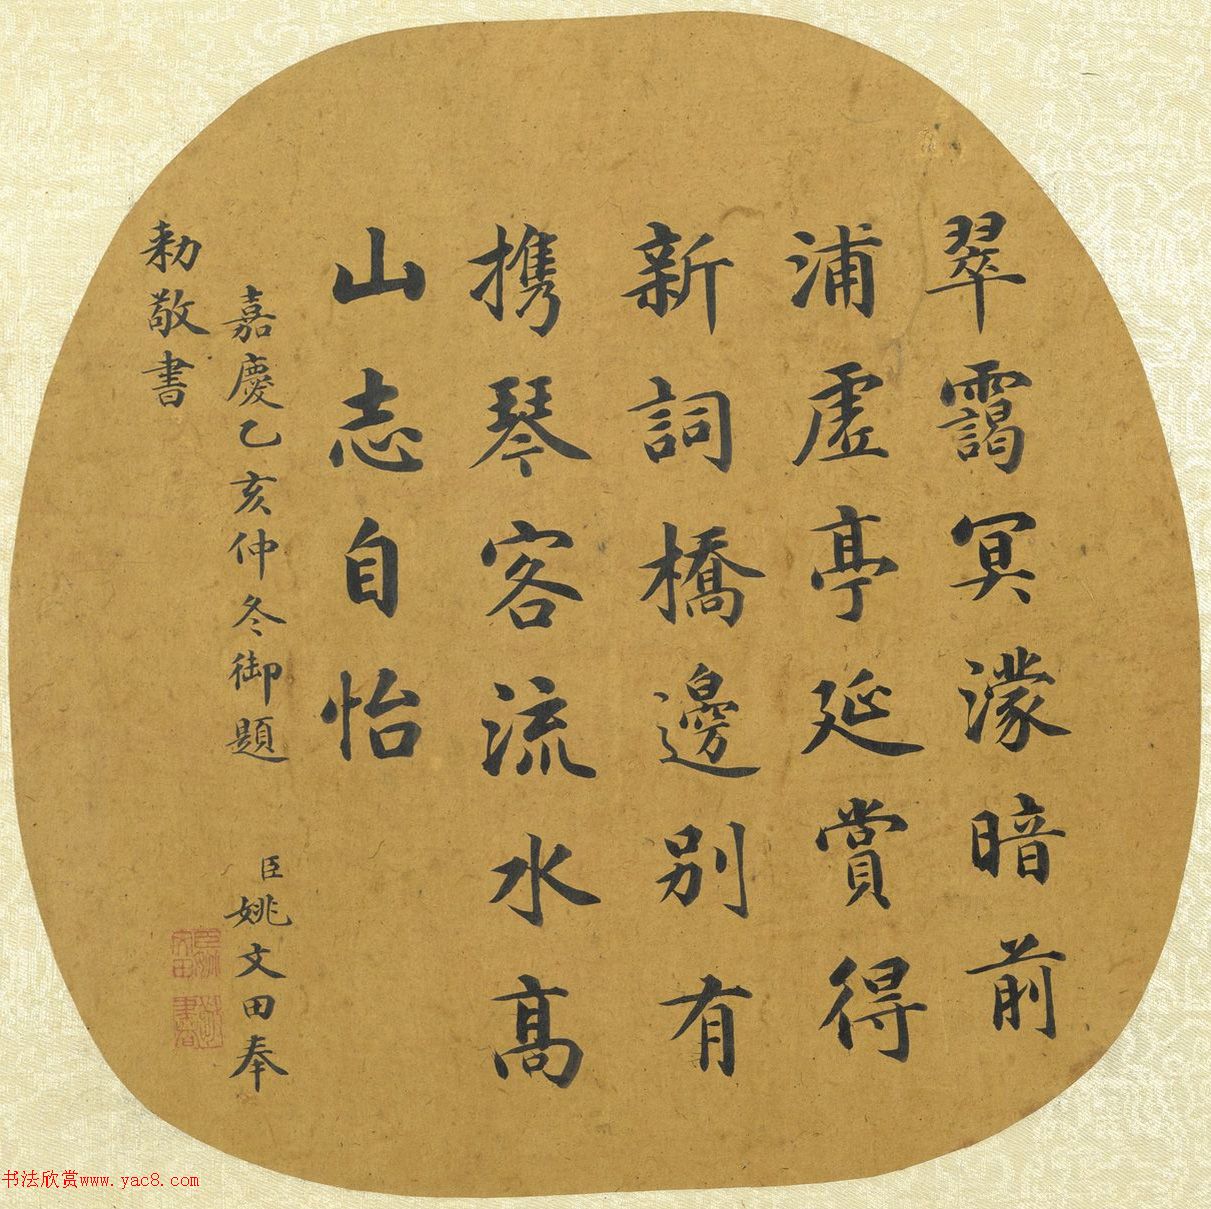 翠靄冥濛暗前
浦虛亭延賞得
新詞橋邊別有
携琴客流水高
山志自怡
嘉慶乙亥仲冬御題
臣姚文田奉
勅敬書
书法欣赏www.yac8.com